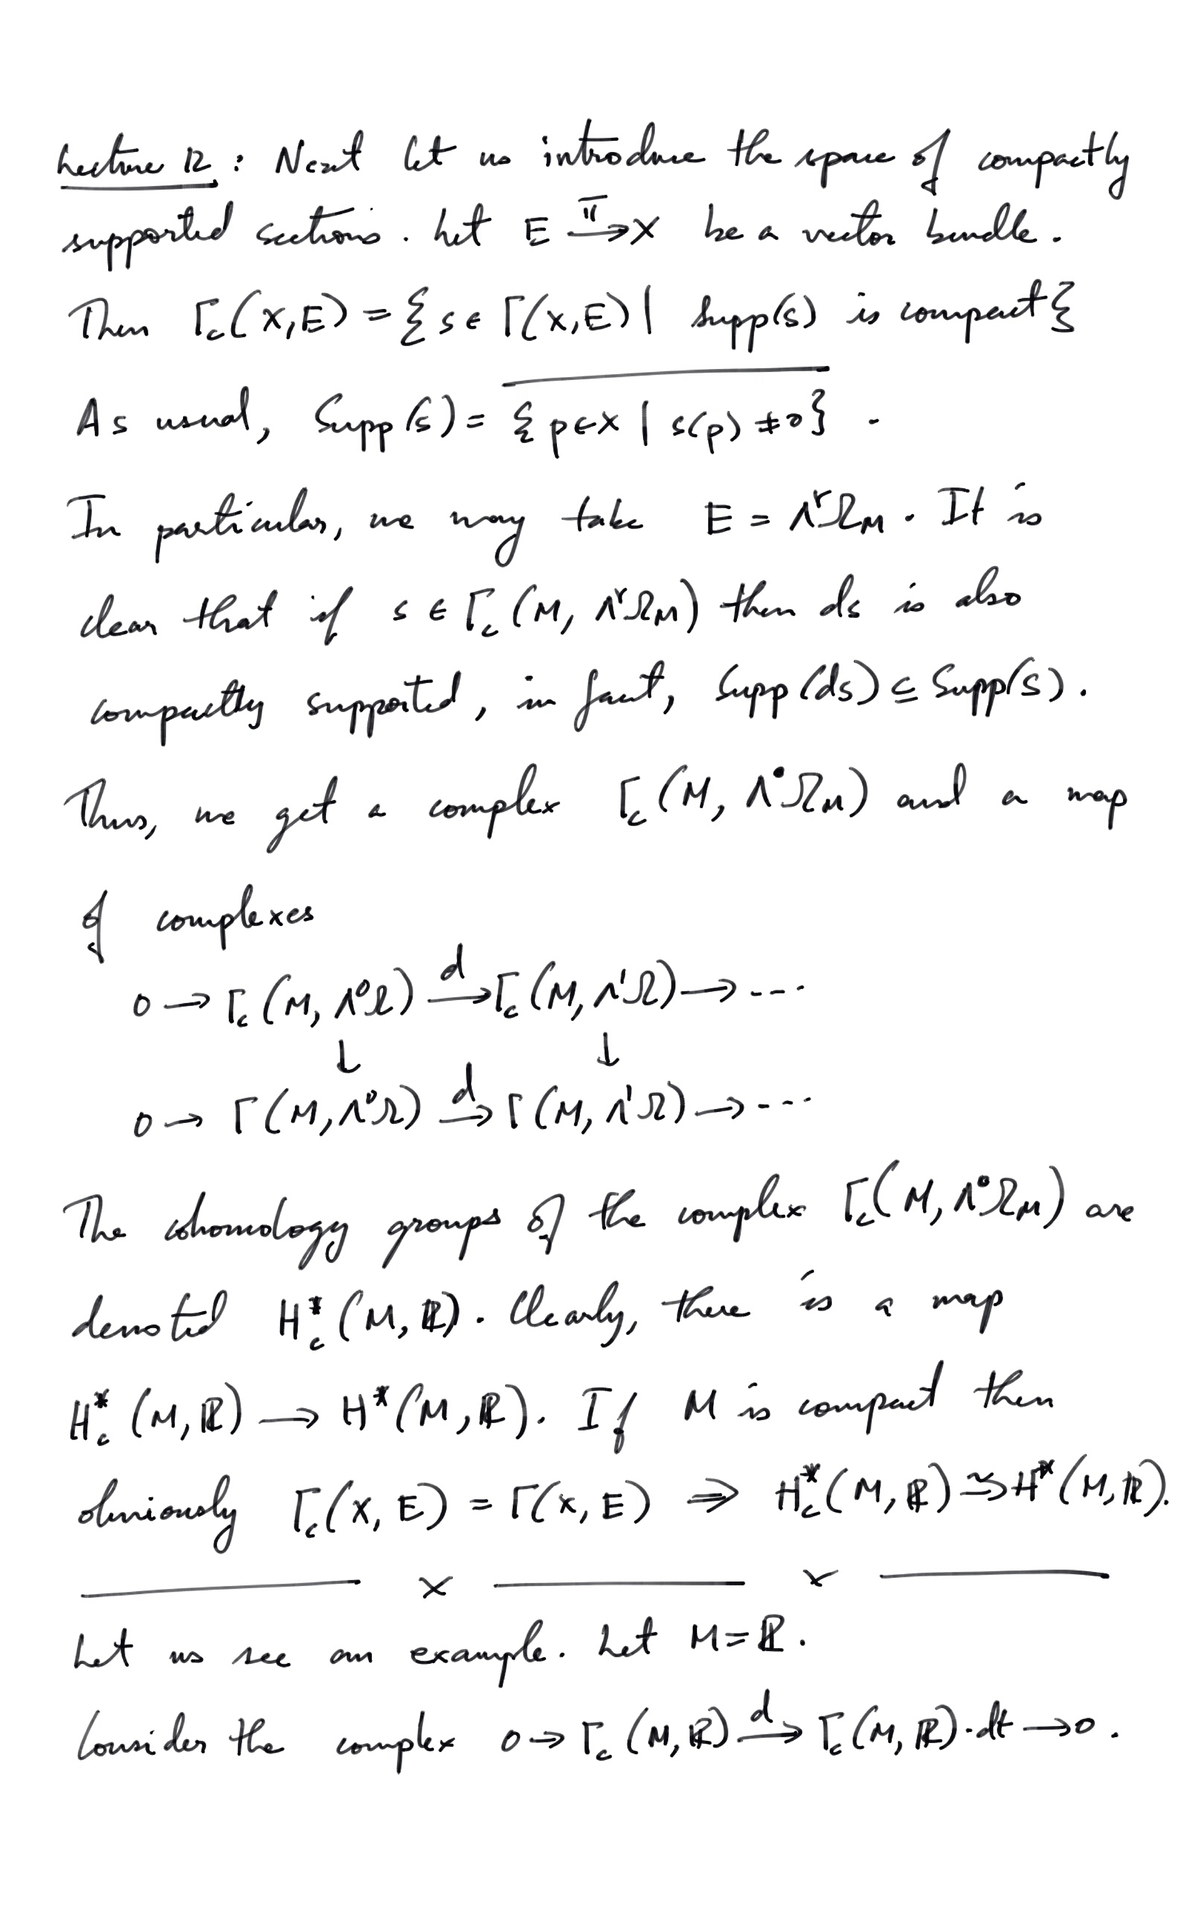 Lecture 12 : Next let us introduce the space of compactly
supported sections. Let E —π→ X be a vector bundle.
Then Γ_c(X,E) = { s ∈ Γ(X,E) | Supp(s) is compact }
As usual, Supp(s) = \overline{{ p ∈ X | s(p) ≠ 0 }} .
In particular, we may take E = Λ^rΩ_M . It is
clear that if s ∈ Γ_c(M, Λ^rΩ_M) then ds is also
compactly supported, in fact, Supp(ds) ⊆ Supp(s).
Thus, we get a complex Γ_c(M, Λ^•Ω_M) and a map
of complexes
0 → Γ_c(M, Λ^0Ω) —d→ Γ_c(M, Λ^1Ω) → ---
↓ ↓
0 → Γ(M, Λ^0Ω) —d→ Γ(M, Λ^1Ω) → ---
The cohomology groups of the complex Γ_c(M, Λ^•Ω_M) are
denoted H^*_c(M, ℝ). Clearly, there is a map
H^*_c(M, ℝ) → H^*(M, ℝ). If M is compact then
obviously Γ_c(X, E) = Γ(X, E) ⇒ H^*_c(M, ℝ) ⥲ H^*(M, ℝ).
——— x ——— x ———
Let us see an example. Let M = ℝ.
Consider the complex 0 → Γ_c(M, ℝ) —d→ Γ_c(M, ℝ)·dt → 0 .